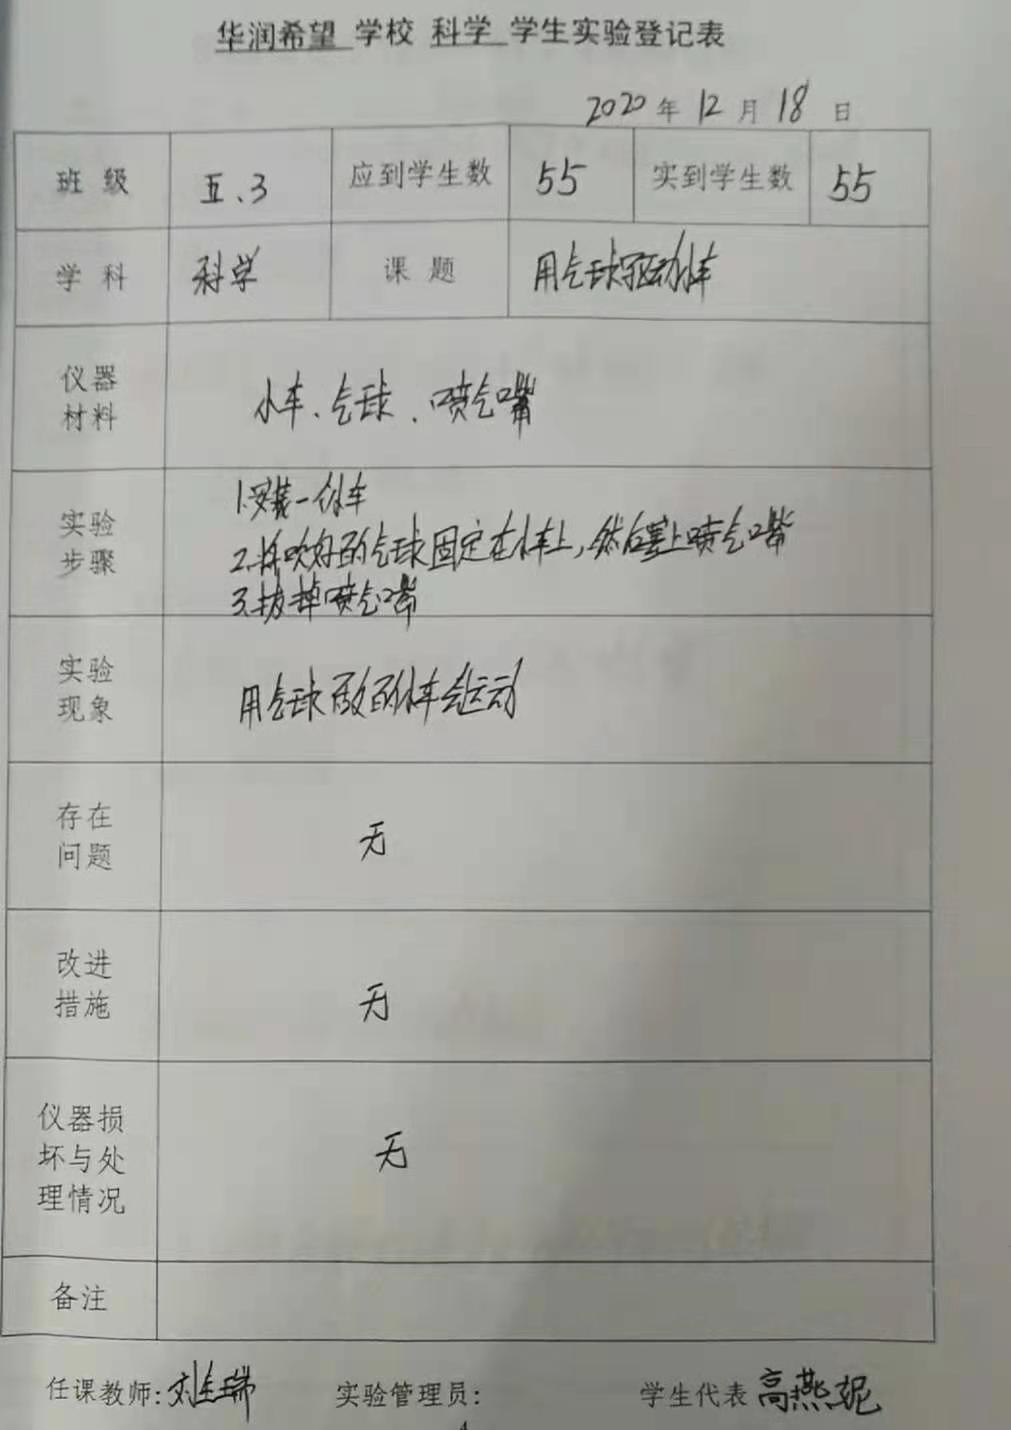 华润希望 学校 科学 学生实验登记表
2020 年 12 月 18 日
班 级 五.3 应到学生数 55 实到学生数 55
学 科 科学 课 题 用气球驱动小车
仪器
材料
小车、气球、喷气嘴
实验
步骤
1.安装一个小车
2.将吹好的气球固定在小车上,然后塞上喷气嘴
3.拔掉喷气嘴
实验
现象
用气球做的小车会运动
存在
问题
无
改进
措施
无
仪器损
坏与处
理情况
无
备注
任课教师: 实验管理员: 学生代表 高燕妮